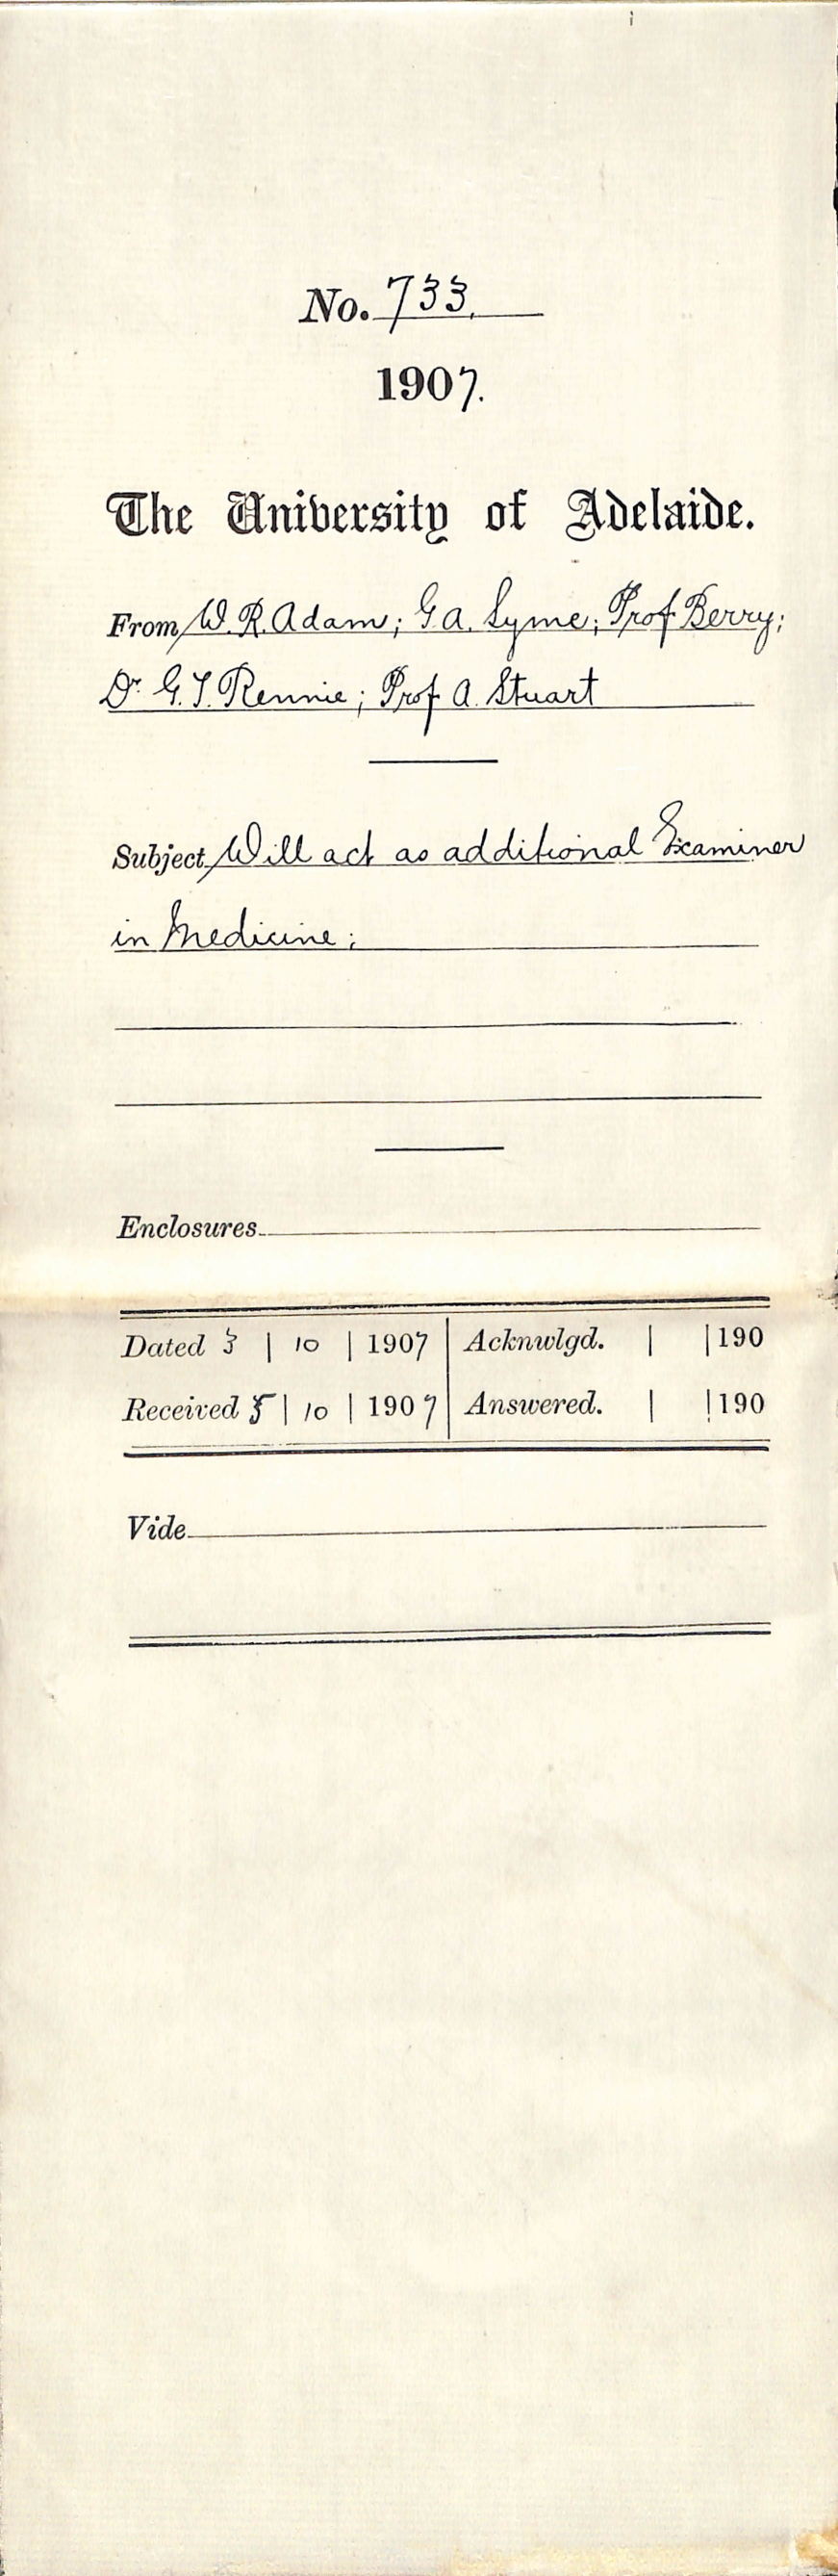 No. 733.
1907.
The University of Adelaide.
From W. R. Adam; G. A. Syme; Prof Berry;
Dr. G. T. Rennie; Prof A. Stuart
Subject Will act as additional Examiner
in Medicine;
Enclosures
Dated 3 | 10 | 1907 Acknwlgd. | | 190
Received 5 | 10 | 1907 Answered. | | 190
Vide